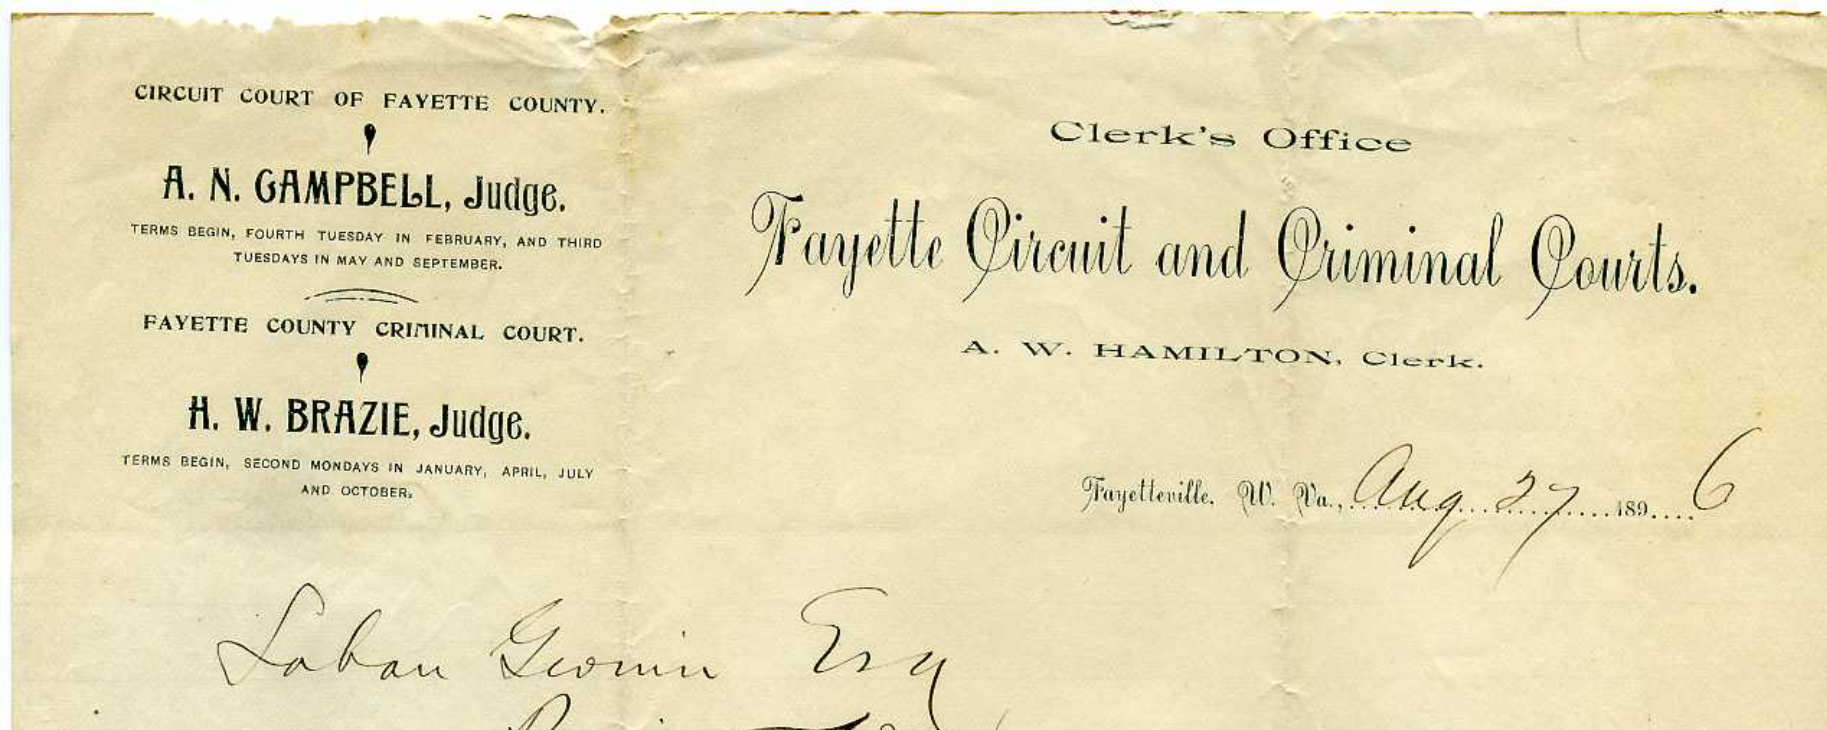 CIRCUIT COURT OF FAYETTE COUNTY.
A. N. CAMPBELL, Judge.
TERMS BEGIN, FOURTH TUESDAY IN FEBRUARY, AND THIRD
TUESDAYS IN MAY AND SEPTEMBER.
FAYETTE COUNTY CRIMINAL COURT.
H. W. BRAZIE, Judge.
TERMS BEGIN, SECOND MONDAYS IN JANUARY, APRIL, JULY
AND OCTOBER.
Clerk's Office
Fayette Circuit and Criminal Courts.
A. W. HAMILTON, Clerk.
Fayetteville, W. Va., Aug. 27 1896
Laban Gwinn Esq